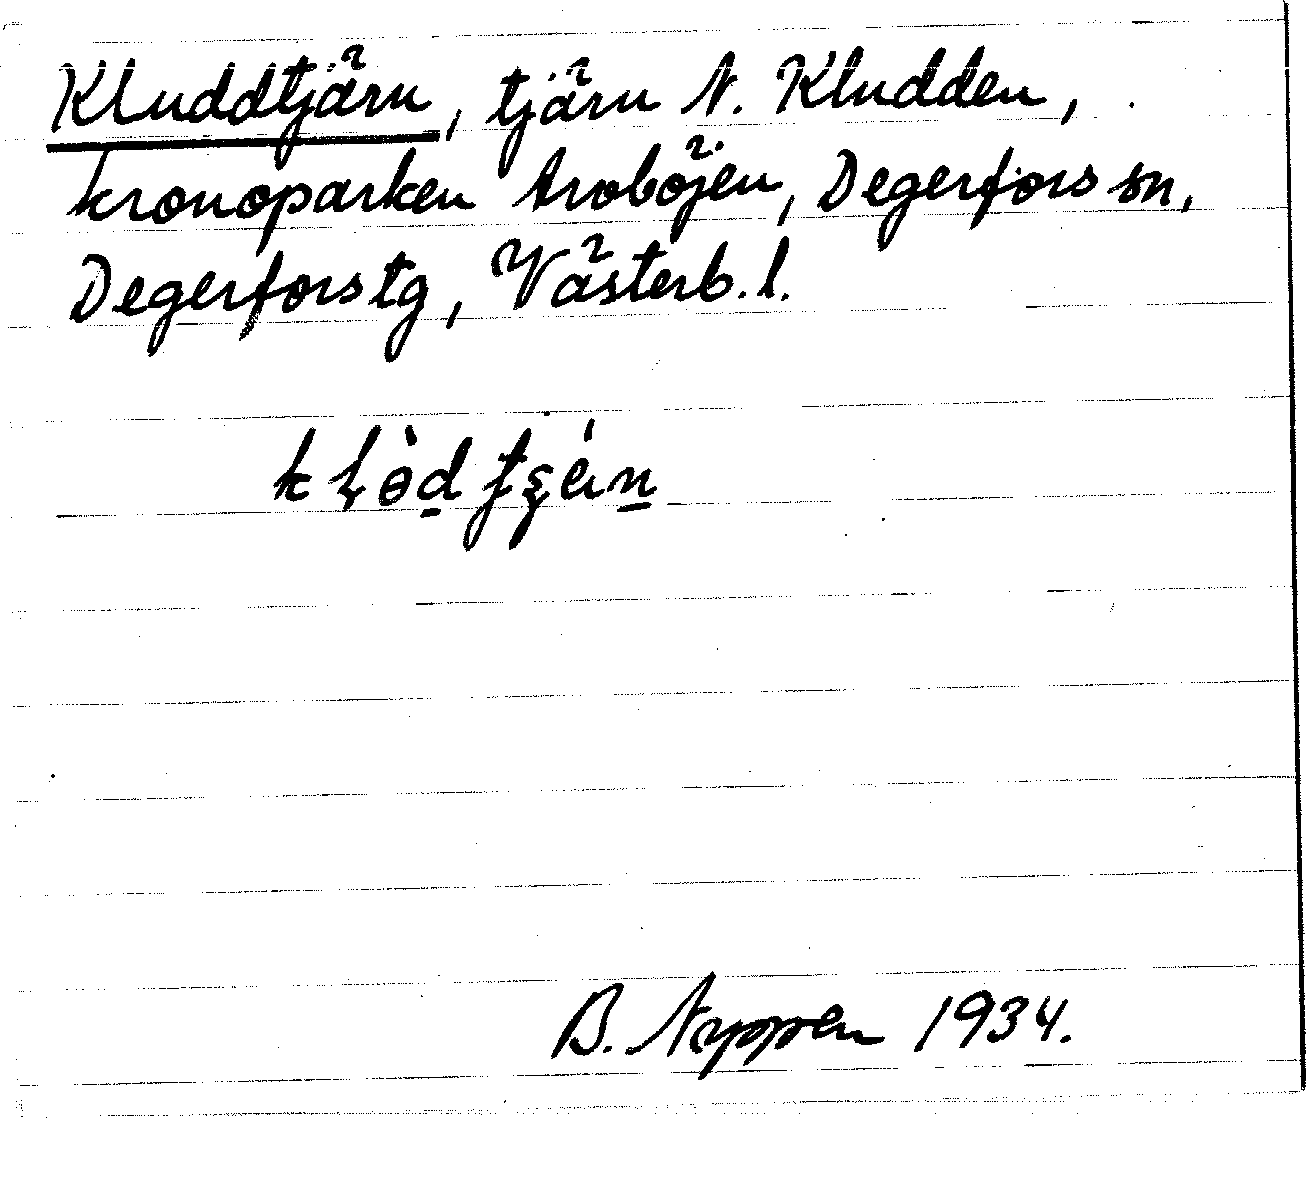 Kluddtjärn, tjärn N. Kludden,
kronoparken Aroböjen, Degerfors sn,
Degerfors tg, Västerb. l.
B. 1934.